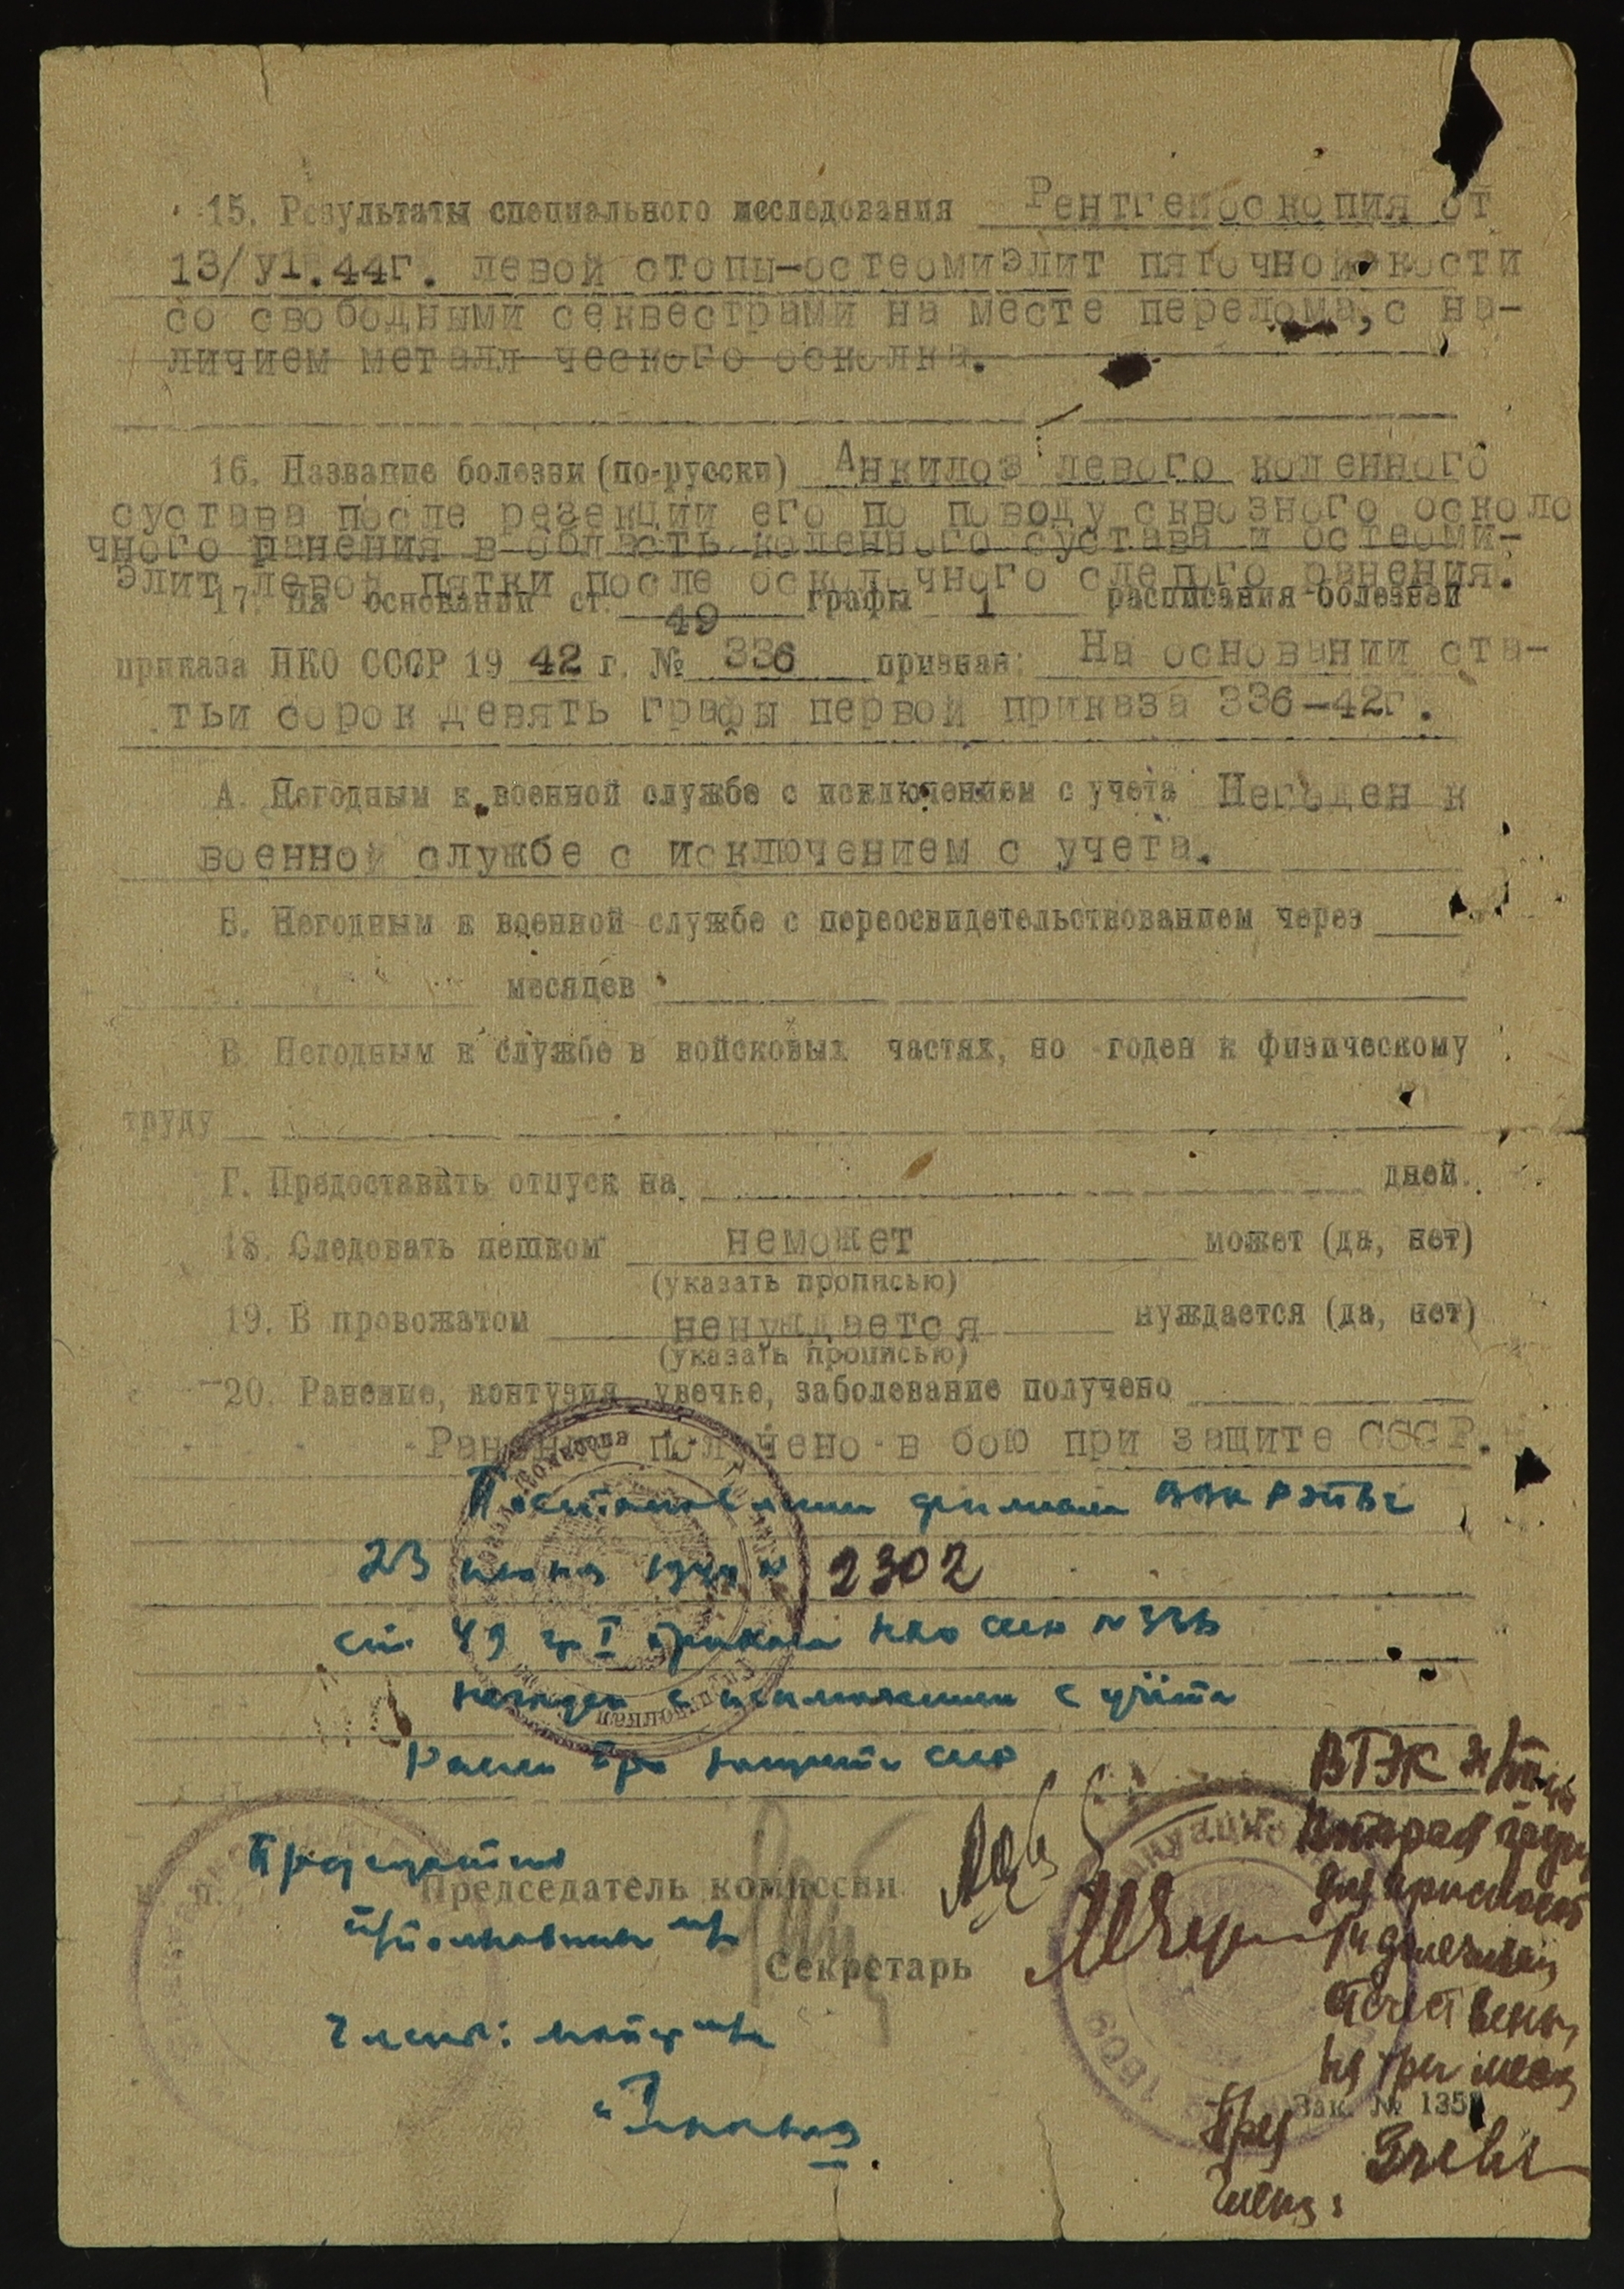 15. Результаты специального исследования Рентгеноскопия от
13/У1.44г. левой стопы-остеомиэлит пяточной кости
со свободными секвестрами на месте перелома, с на-
личием металл ческого осколка.
16. Название болезни (по-русски) Анкилоз левого коленного
сустава после резекции его по поводу сквозного осколо
чного ранения в область коленного сустава и остеоми-
элит левой пятки после осколочного слепого ранения.
17. На основании ст. 49 графы 1 расписания болезней
приказа НКО СССР 19 42 г. № 336 признан: На основании ста-
тьи сорок девять графы первой приказа 336-42г.
А. Негодным к военной службе с исключением с учета Негоден к
военной службе с исключением с учета.
Б. Негодным к военной службе с переосвидетельствованием через
месяцев
В. Негодным к службе в войсковых частях, но годен к физическому
труду
Г. Предоставить отпуск на дней.
18. Следовать пешком неможет может (да, нет)
(указать прописью)
19. В провожатом ненуждается нуждается (да, нет)
(указать прописью)
20. Ранение, контузия, увечье, заболевание получено
Ранение получено в бою при защите СССР.
Постановлением филиала ВВК
23 июня 1944 № 2302
ст 49 гр I приказа НКО СССР № 336
негоден с исключением с учёта
Ранен при защите СССР
ВТЭК
вторая
Председатель
Председатель комиссии
п/полковник м/с
Секретарь
Члены: майор м/с
на три мес
Зак. № 135
Пред
Члены: